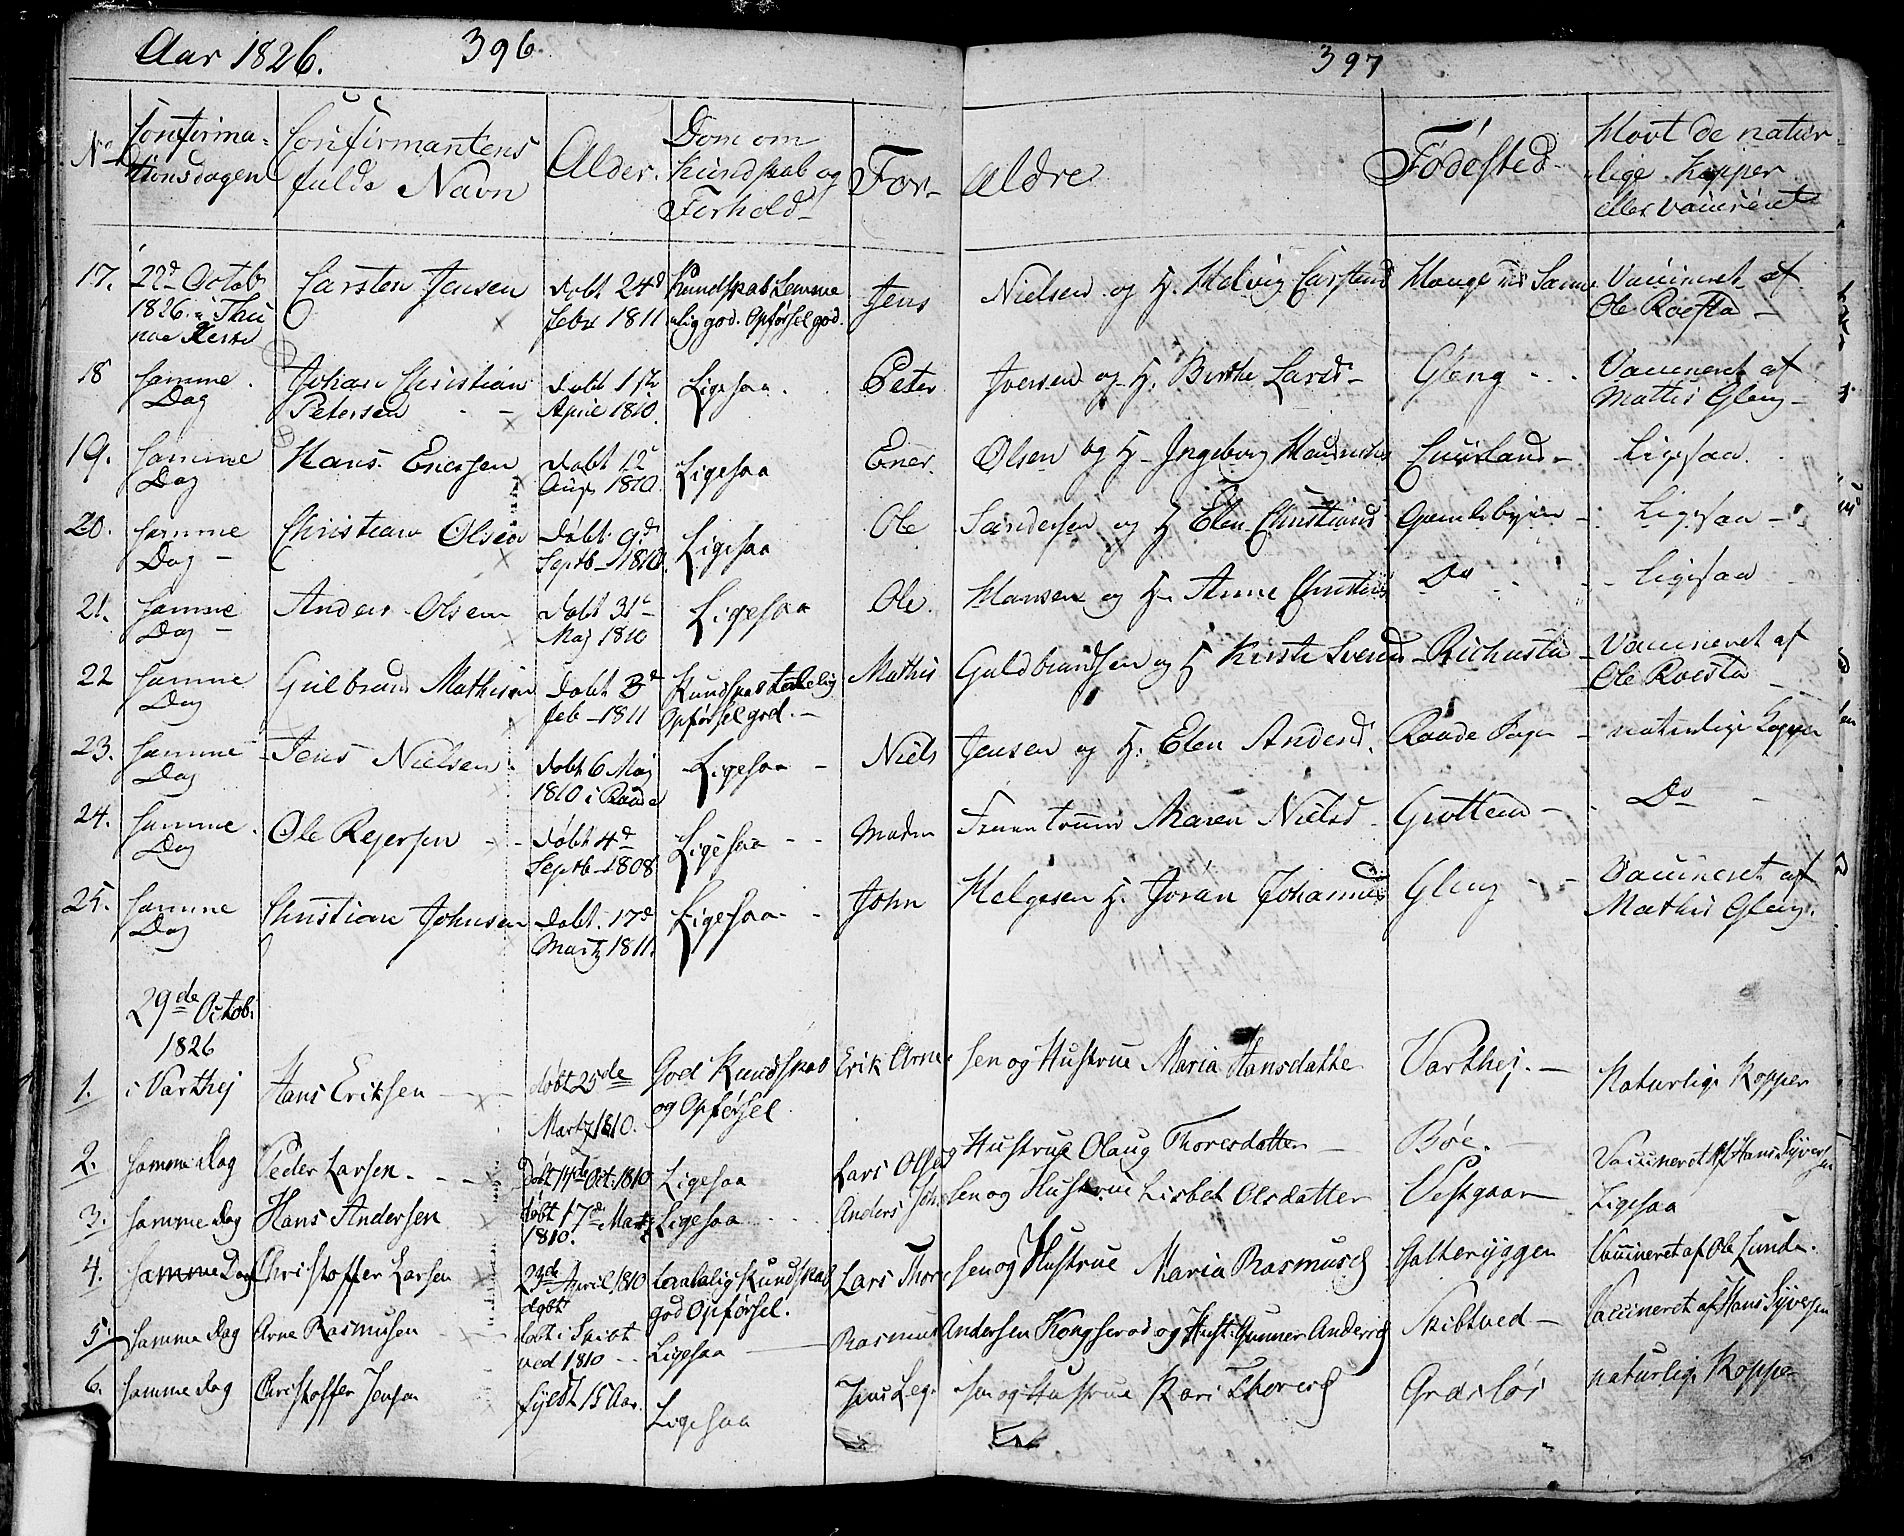 Aar 1826. 396
397
No Confirma-tionsdagen Confirmantens fulde Navn Alder. Dom om Kundskab og Forhold For- ældre Fødested Havt de natur-lige Kopper eller vaccineret
17. 22d Octobr 1826 i Thu nøe Kirke Carsten Jensen døbt 24d febr 1811 Kundskab temme lig god. Opførsel god. Jens Nielsen og H. Helvig Carstensd Vaccineret af Ole Roesta
18 Samme Dag Johan Christian Petersen døbt 1ste April 1810. Ligesaa. Peter Iversen og H. Birthe Larsd Gleng Vaccineret af Mattis Gleng
19. Samme Dag Hans Enersen døbt 12 Aug. 1810. Ligesaa Ener. Olsen og H. Ingeborg Ligesaa.
20. Samme Dag Christian Olsen døbt 9d Septb 1810 Ligesaa Ole Sandersen og H Elen Christiansd Gamlebyen Ligesaa
21. Samme Dag Anders Olsen døbt 31 Maj 1810 Ligesaa Ole. Hansen og H. Anne Do Ligesaa
22 Samme Dag Gulbrand Mathisen døbt 3d feb 1811 Kundskab taalelig Opførsel god. Mathis Guldbrandsen og H Kirste Svensd Richusta Vaccineret af Ole Roesta
23. Samme Dag Jens Nielsen døbt 6 Maj 1810 i Raade Ligesaa Niels Jensen og H. Elen Andersd. Raade naturlige Kopper
24. Samme Dag Ole Rejersen døbt 4d Septb 1808 Ligesaa Maren Nielsd Do
25. Samme Dag Christian Johnsen døbt. 17d Martz 1811. Ligesaa John Helgesen H. Joran Johannesd Gleng Vaccineret af Mathis Gleng.
29de Octob. 1826
1. i Varthej Hans Eriksen døbt 25de Martz 1810. God Kundskab og Opførsel Erik Arne sen og Hustrue Maria Hansdatter Varthej. Naturlige Kopper
2. Samme dag Peder Larsen. Døbt 14de Oct. 1810 Ligesaa Lars Olsen Hustrue Olaug Thoresdatter Bøe. Vaccineret af Hans Syversen
3. Samme dag Hans Andersen døbt 17de Martz 1810. Ligesaa Anders Joh sen og Hustrue Lisbet Olsdatter Vestgaar Ligesaa
4. Samme Dag Christoffer Larsen April 1810 døbt taalelig Kundskab god Opførsel. Lars Thore sen og Hustrue Maria Rasmusd Vaccineret af Ole Lunde.
5. Samme dag Arne Rasmusen døbt i Skibt ved 1810 Ligesaa Rasmus Andersen Kongserød og Hust: Gunner Andersd Skibtved Vaccineret af Hans Syversen
6. Samme dag Christoffer Jensen fyldt 15 Aar. Ligesaa Jens sen og Hustrue Kari Thoresd Græsløs naturlige Kopper